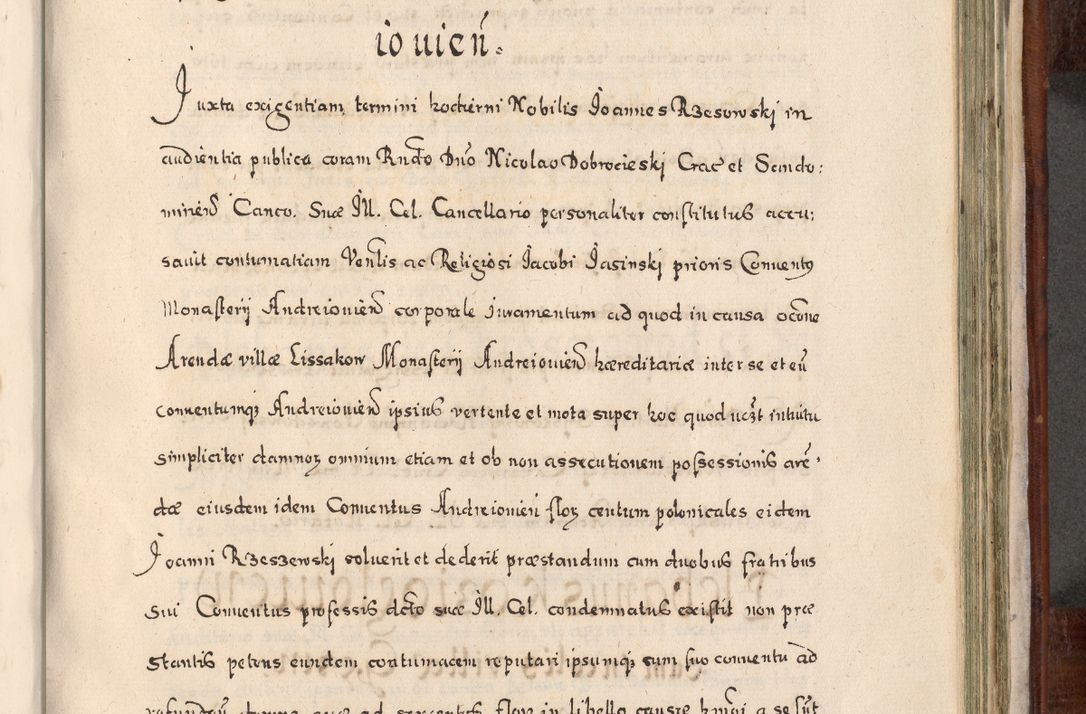 io uień.
Juxta exigentiam termini hodierni Nobilis Joannes Rzesowski in
audientia publica coram Rndo Dno Nicolao Dobrocieski Crac et Sendo:
mirień Canco. Suæ Ill. Cel. Cancellario personaliter constitutus accu:
sauit contumatiam Venlis ac Religiosi Jacobi Jasinski prioris Conuentus
Monasterij Andreiouień corporale iuramentum ad quod in causa occone
Arendæ villæ Lissakow Monasterij Andreiouień hæreditariæ inter se et eū
conuentumq; Andreiouień ipsius vertente et mota super hoc quod uczt intuitu
simpliciter damnoz omnium etiam et ob non assecutionem possessionis arē
dæ eiusdem idem Conuentus Andreiouień floz centum polonicales eidem
Joanni Rzeszewski soluerit et dederit præstandum cum duobus fratribus
sui Conuentus professis dcto suæ Ill. Cel. condemnatus existit non præ
stantis petens eundem contumacem reputari ipsumq; cum suo conuentu ad
refundēū damna quæ ad sexcentos floz in libello causæ hmōi a se sūt